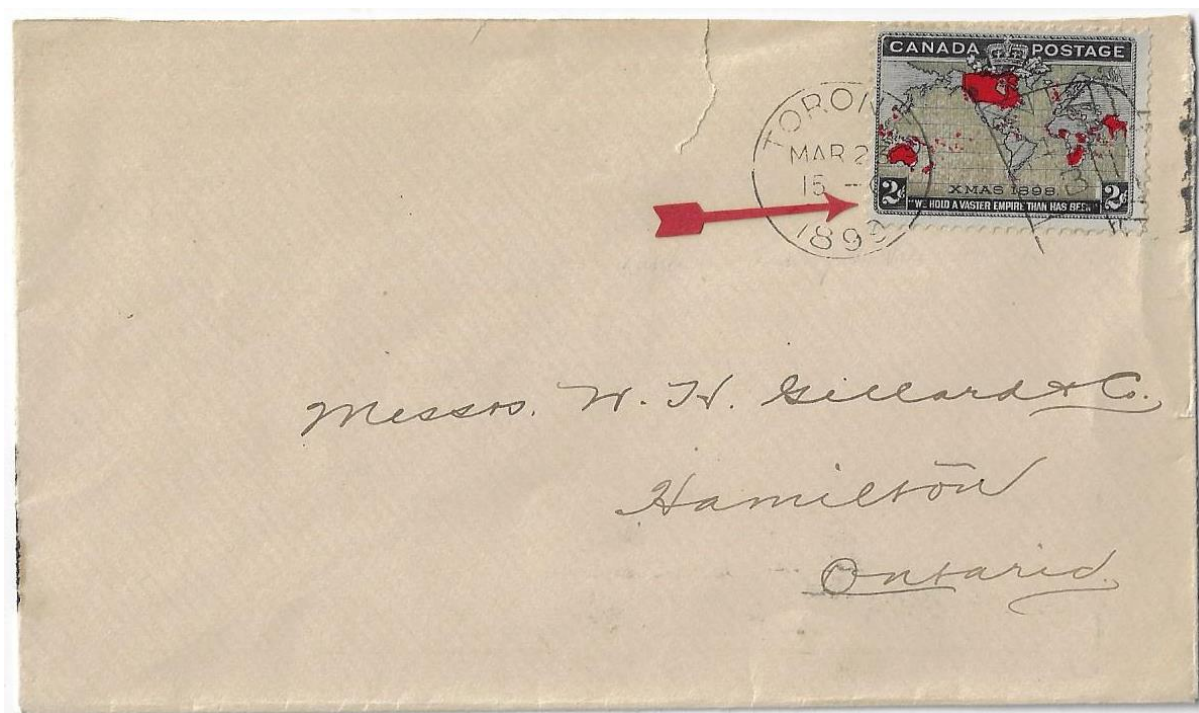 CANADA POSTAGE
XMAS 1898
2¢ 2¢
"WE HOLD A VASTER EMPIRE THAN HAS BEEN"
MAR 2
15 –
Messrs. W. H. Gillard & Co.
Hamilton
Ontario.